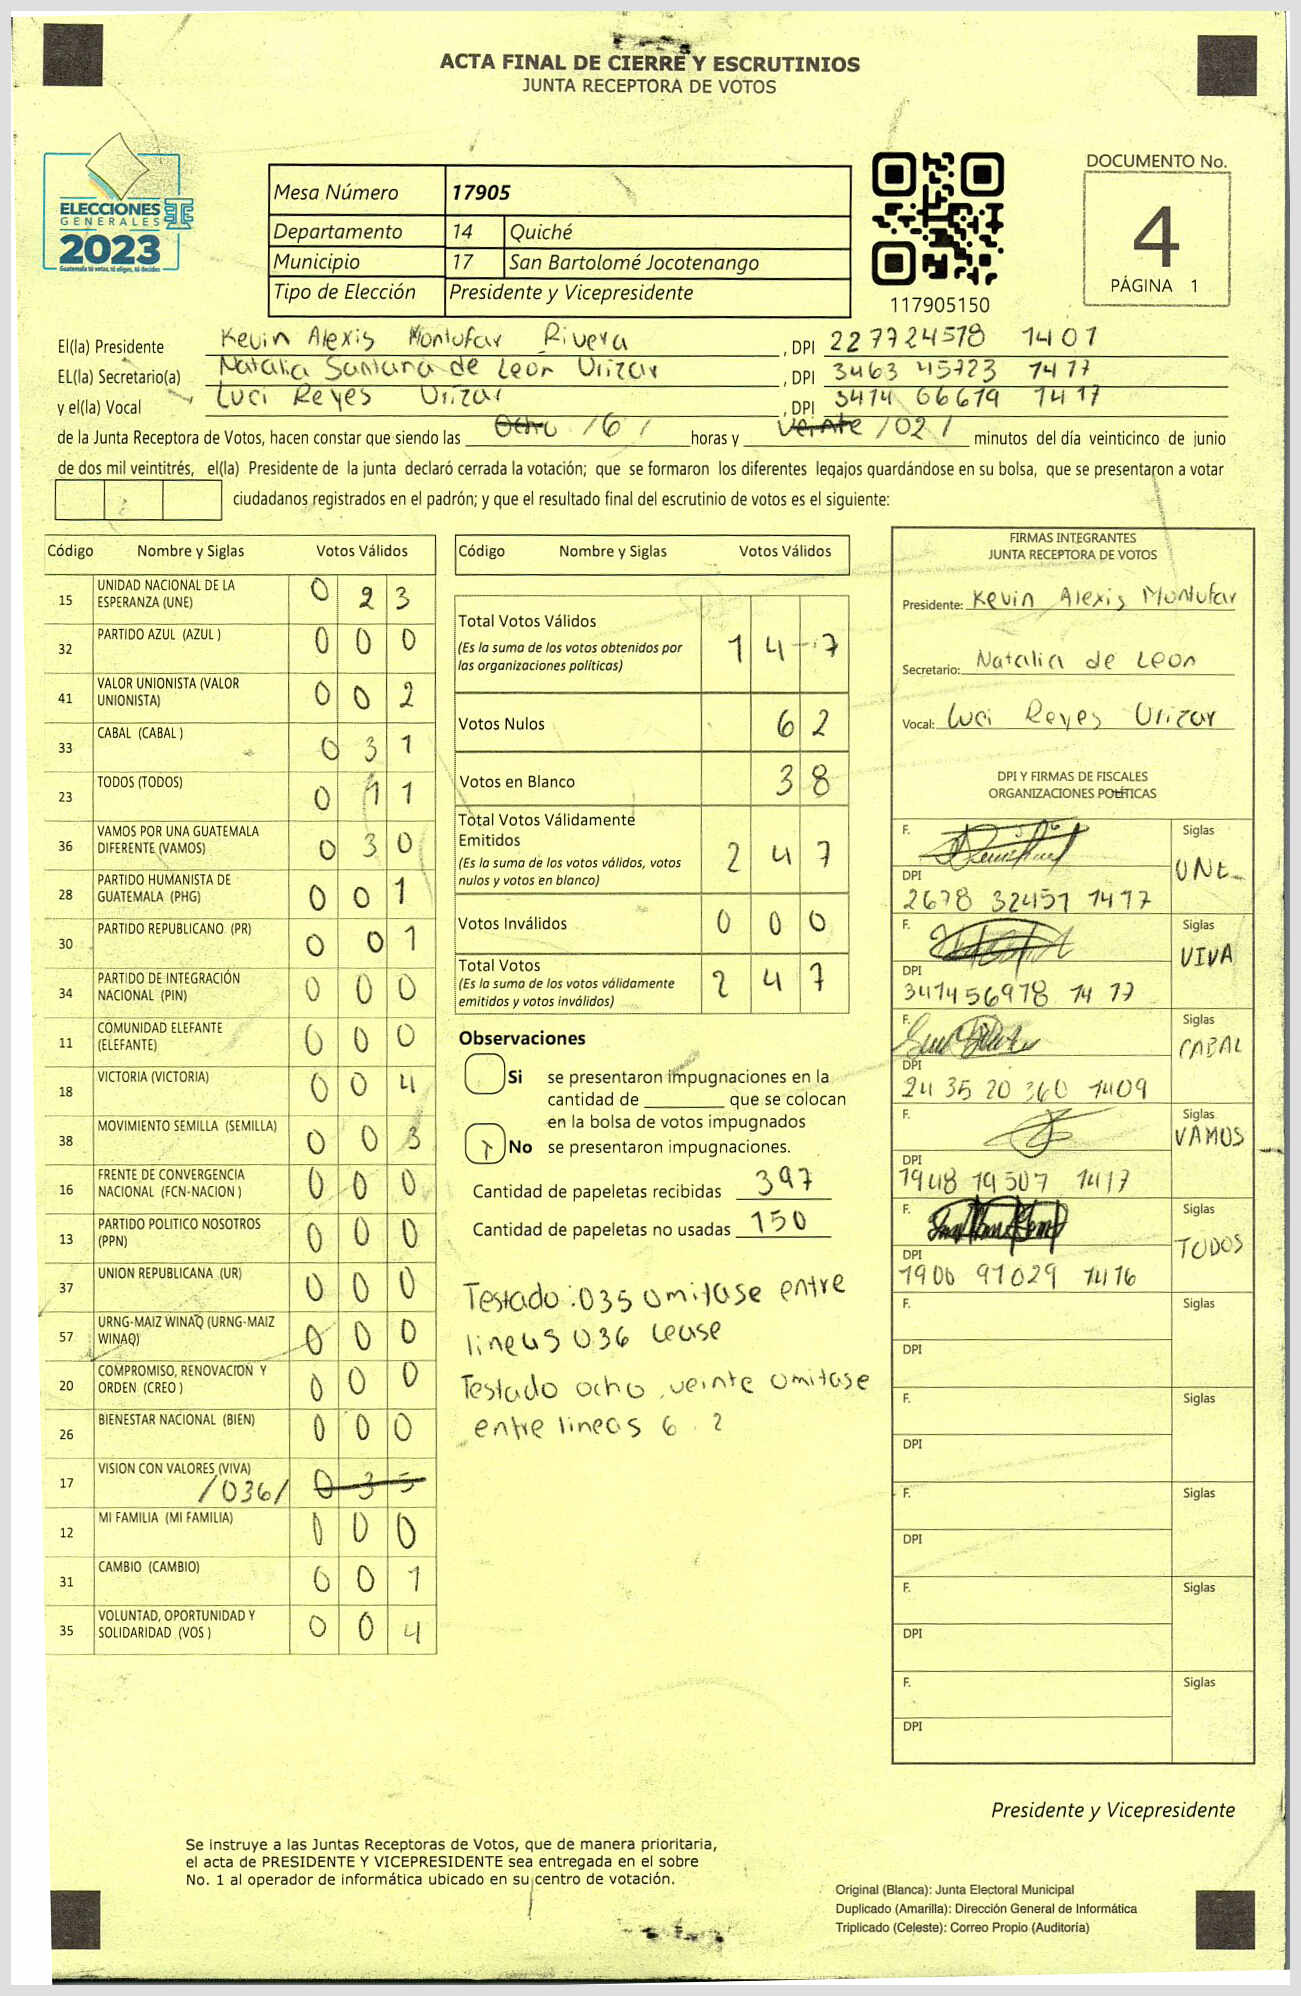 ACTA FINAL DE CIERRE Y ESCRUTINIOS
JUNTA RECEPTORA DE VOTOS
ELECCIONES
GENERALES
2023
Guatemala tú votas, tú eliges, tú decides
Mesa Número 17905
Departamento 14 Quiché
Municipio 17 San Bartolomé Jocotenango
Tipo de Elección Presidente y Vicepresidente
117905150
DOCUMENTO No.
4
PÁGINA 1
El(la) Presidente Kevin Alexis Montufar Rivera, DPI 227724578 1401
EL(la) Secretario(a) Natalia Santana de Leon Urizar, DPI 3463 45723 1417
y el(la) Vocal Luci Reyes Urizar, DPI 3414 66679 1417
de la Junta Receptora de Votos, hacen constar que siendo las Ocho /6/ horas y Veinte /02/ minutos del día veinticinco de junio
de dos mil veintitrés, el(la) Presidente de la junta declaró cerrada la votación; que se formaron los diferentes legajos guardándose en su bolsa, que se presentaron a votar
ciudadanos registrados en el padrón; y que el resultado final del escrutinio de votos es el siguiente:
Código Nombre y Siglas Votos Válidos
15 UNIDAD NACIONAL DE LA ESPERANZA (UNE) 0 2 3
32 PARTIDO AZUL (AZUL ) 0 0 0
41 VALOR UNIONISTA (VALOR UNIONISTA) 0 0 2
33 CABAL (CABAL ) 0 3 1
23 TODOS (TODOS) 0 1 1
36 VAMOS POR UNA GUATEMALA DIFERENTE (VAMOS) 0 3 0
28 PARTIDO HUMANISTA DE GUATEMALA (PHG) 0 0 1
30 PARTIDO REPUBLICANO (PR) 0 0 1
34 PARTIDO DE INTEGRACIÓN NACIONAL (PIN) 0 0 0
11 COMUNIDAD ELEFANTE (ELEFANTE) 0 0 0
18 VICTORIA (VICTORIA) 0 0 4
38 MOVIMIENTO SEMILLA (SEMILLA) 0 0 3
16 FRENTE DE CONVERGENCIA NACIONAL (FCN-NACION ) 0 0 0
13 PARTIDO POLITICO NOSOTROS (PPN) 0 0 0
37 UNION REPUBLICANA (UR) 0 0 0
57 URNG-MAIZ WINAQ (URNG-MAIZ WINAQ) 0 0 0
20 COMPROMISO, RENOVACION Y ORDEN (CREO ) 0 0 0
26 BIENESTAR NACIONAL (BIEN) 0 0 0
17 VISION CON VALORES (VIVA) /036/ 0 3 5
12 MI FAMILIA (MI FAMILIA) 0 0 0
31 CAMBIO (CAMBIO) 0 0 1
35 VOLUNTAD, OPORTUNIDAD Y SOLIDARIDAD (VOS ) 0 0 4
Código Nombre y Siglas Votos Válidos
Total Votos Válidos 1 4 7
(Es la suma de los votos obtenidos por
las organizaciones políticas)
Votos Nulos 6 2
Votos en Blanco 3 8
Total Votos Válidamente
Emitidos 2 4 7
(Es la suma de los votos válidos, votos
nulos y votos en blanco)
Votos Inválidos 0 0 0
Total Votos 2 4 7
(Es la suma de los votos válidamente
emitidos y votos inválidos)
Observaciones
Si se presentaron impugnaciones en la
cantidad de ________ que se colocan
en la bolsa de votos impugnados
No se presentaron impugnaciones.
Cantidad de papeletas recibidas 397
Cantidad de papeletas no usadas 150
Testado :035 omitase entre
lineas 036 Lease
Testado ocho, veinte omitase
entre lineas 6 . 2
FIRMAS INTEGRANTES
JUNTA RECEPTORA DE VOTOS
Presidente: Kevin Alexis Montufar
Secretario: Natalia de Leon
Vocal: Luci Reyes Urizar
DPI Y FIRMAS DE FISCALES
ORGANIZACIONES POLÍTICAS
F. Siglas UNE
DPI 2678 32451 1417
F. Siglas VIVA
DPI 341456978 14 17
F. Siglas CABAL
DPI 24 35 20 360 1409
F. Siglas VAMOS
DPI 1948 19507 1417
F. Siglas TODOS
DPI 1900 91029 1416
F. Siglas
DPI
F. Siglas
DPI
F. Siglas
DPI
F. Siglas
DPI
F. Siglas
DPI
Presidente y Vicepresidente
Se instruye a las Juntas Receptoras de Votos, que de manera prioritaria,
el acta de PRESIDENTE Y VICEPRESIDENTE sea entregada en el sobre
No. 1 al operador de informática ubicado en su centro de votación.
Original (Blanca): Junta Electoral Municipal
Duplicado (Amarilla): Dirección General de Informática
Triplicado (Celeste): Correo Propio (Auditoría)